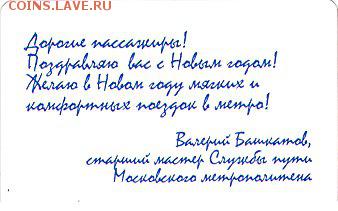 COINS.LAVE.RU
Дорогие пассажиры!
Поздравляю вас с Новым годом!
Желаю в Новом году мягких и
комфортных поездок в метро!
Валерий Башкатов,
старший мастер Службы пути
Московского метрополитена